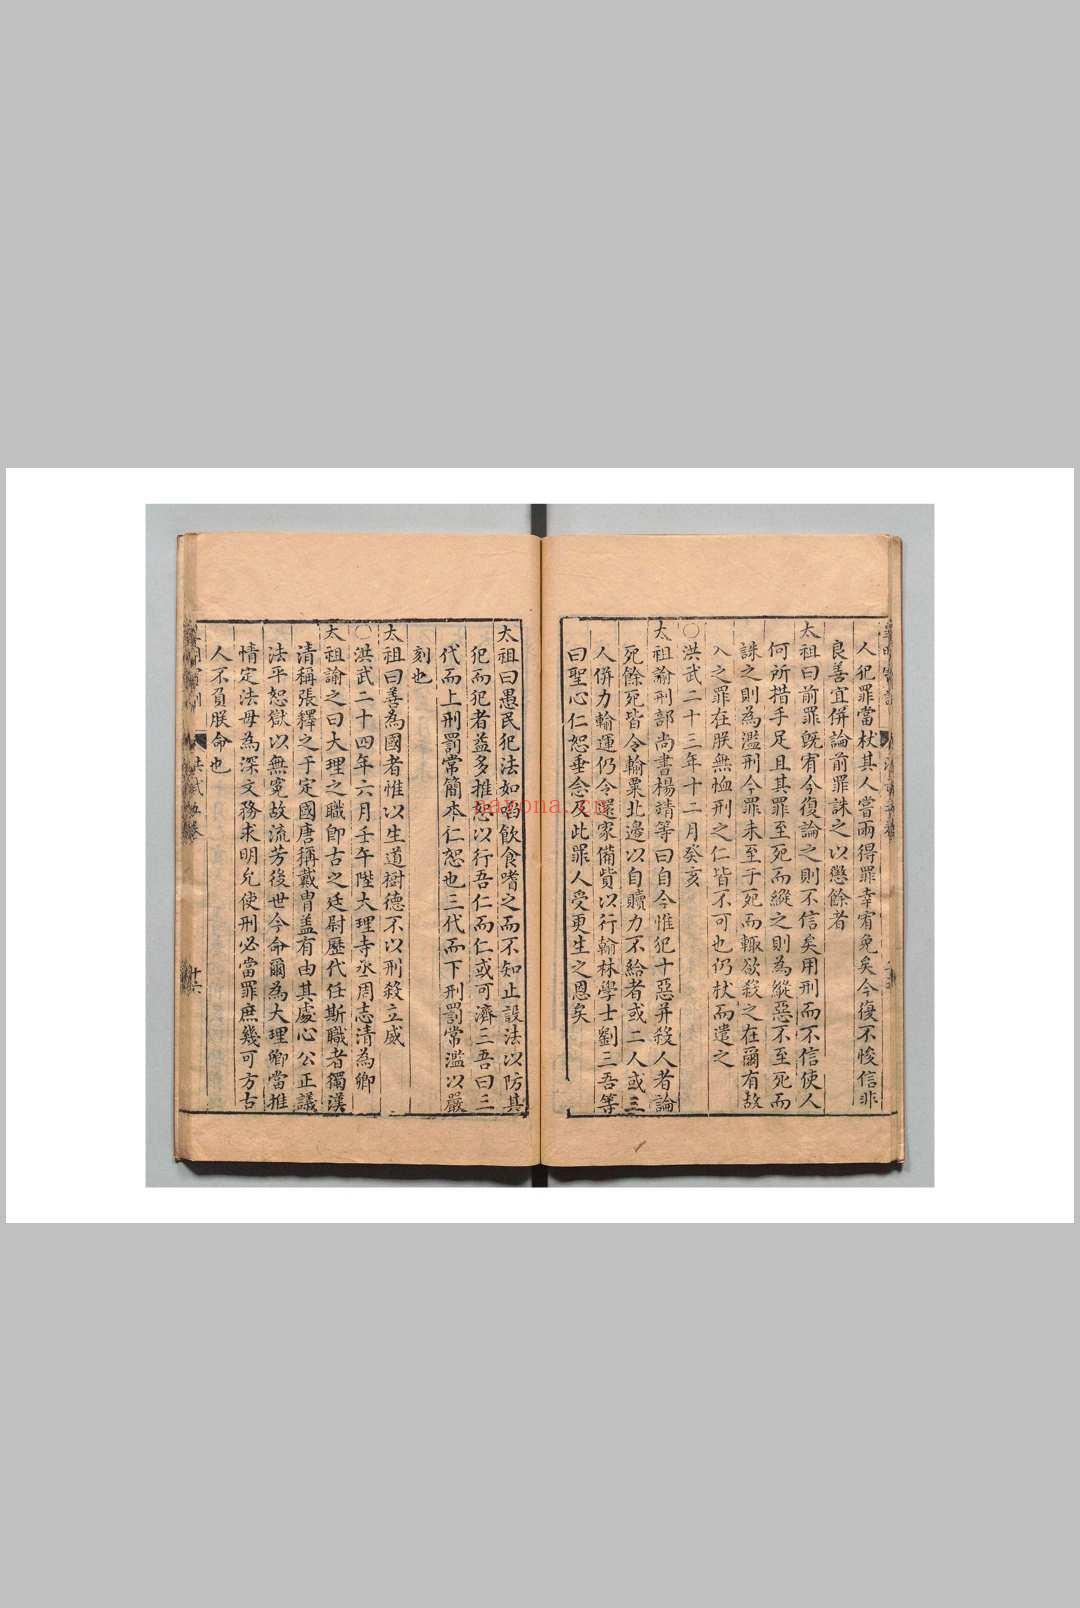 人犯罪當杖其人嘗兩得罪幸宥免矣今復不悛信非
良善宜併論前罪誅之以懲餘者
太祖曰前罪既宥今復論之則不信矣用刑而不信使人
何所措手足且其罪至死而縱之則為縱惡不至死而
誅之則為濫刑今罪未至于死而輙欲殺之在爾有故
入之罪在朕無恤刑之仁皆不可也仍杖而遣之
○洪武二十三年十二月癸亥
太祖諭刑部尚書楊靖等曰自今惟犯十惡并殺人者論
死餘死皆令輸粟北邊以自贖力不給者或二人或三
人併力輸運仍令還家備貲以行翰林學士劉三吾等
曰聖心仁恕垂念及此罪人受更生之恩矣
太祖曰愚民犯法如啗飲食嗜之而不知止設法以防其
犯而犯者益多推恕以行吾仁而仁或可濟三吾曰三
代而上刑罰常簡本仁恕也三代而下刑罰常濫以嚴
刻也
太祖曰善為國者惟以生道樹德不以刑殺立威
○洪武二十四年六月壬午陞大理寺丞周志清為卿
太祖諭之曰大理之職即古之廷尉歷代任斯職者獨漢
清稱張釋之于定國唐稱戴冑盖有由其處心公正議
法平恕獄以無冤故流芳後世今命爾為大理卿當推
情定法毋為深文務求明允使刑必當罪庶幾可方古
人不負朕命也
洪武五卷
十六
nayona.cn